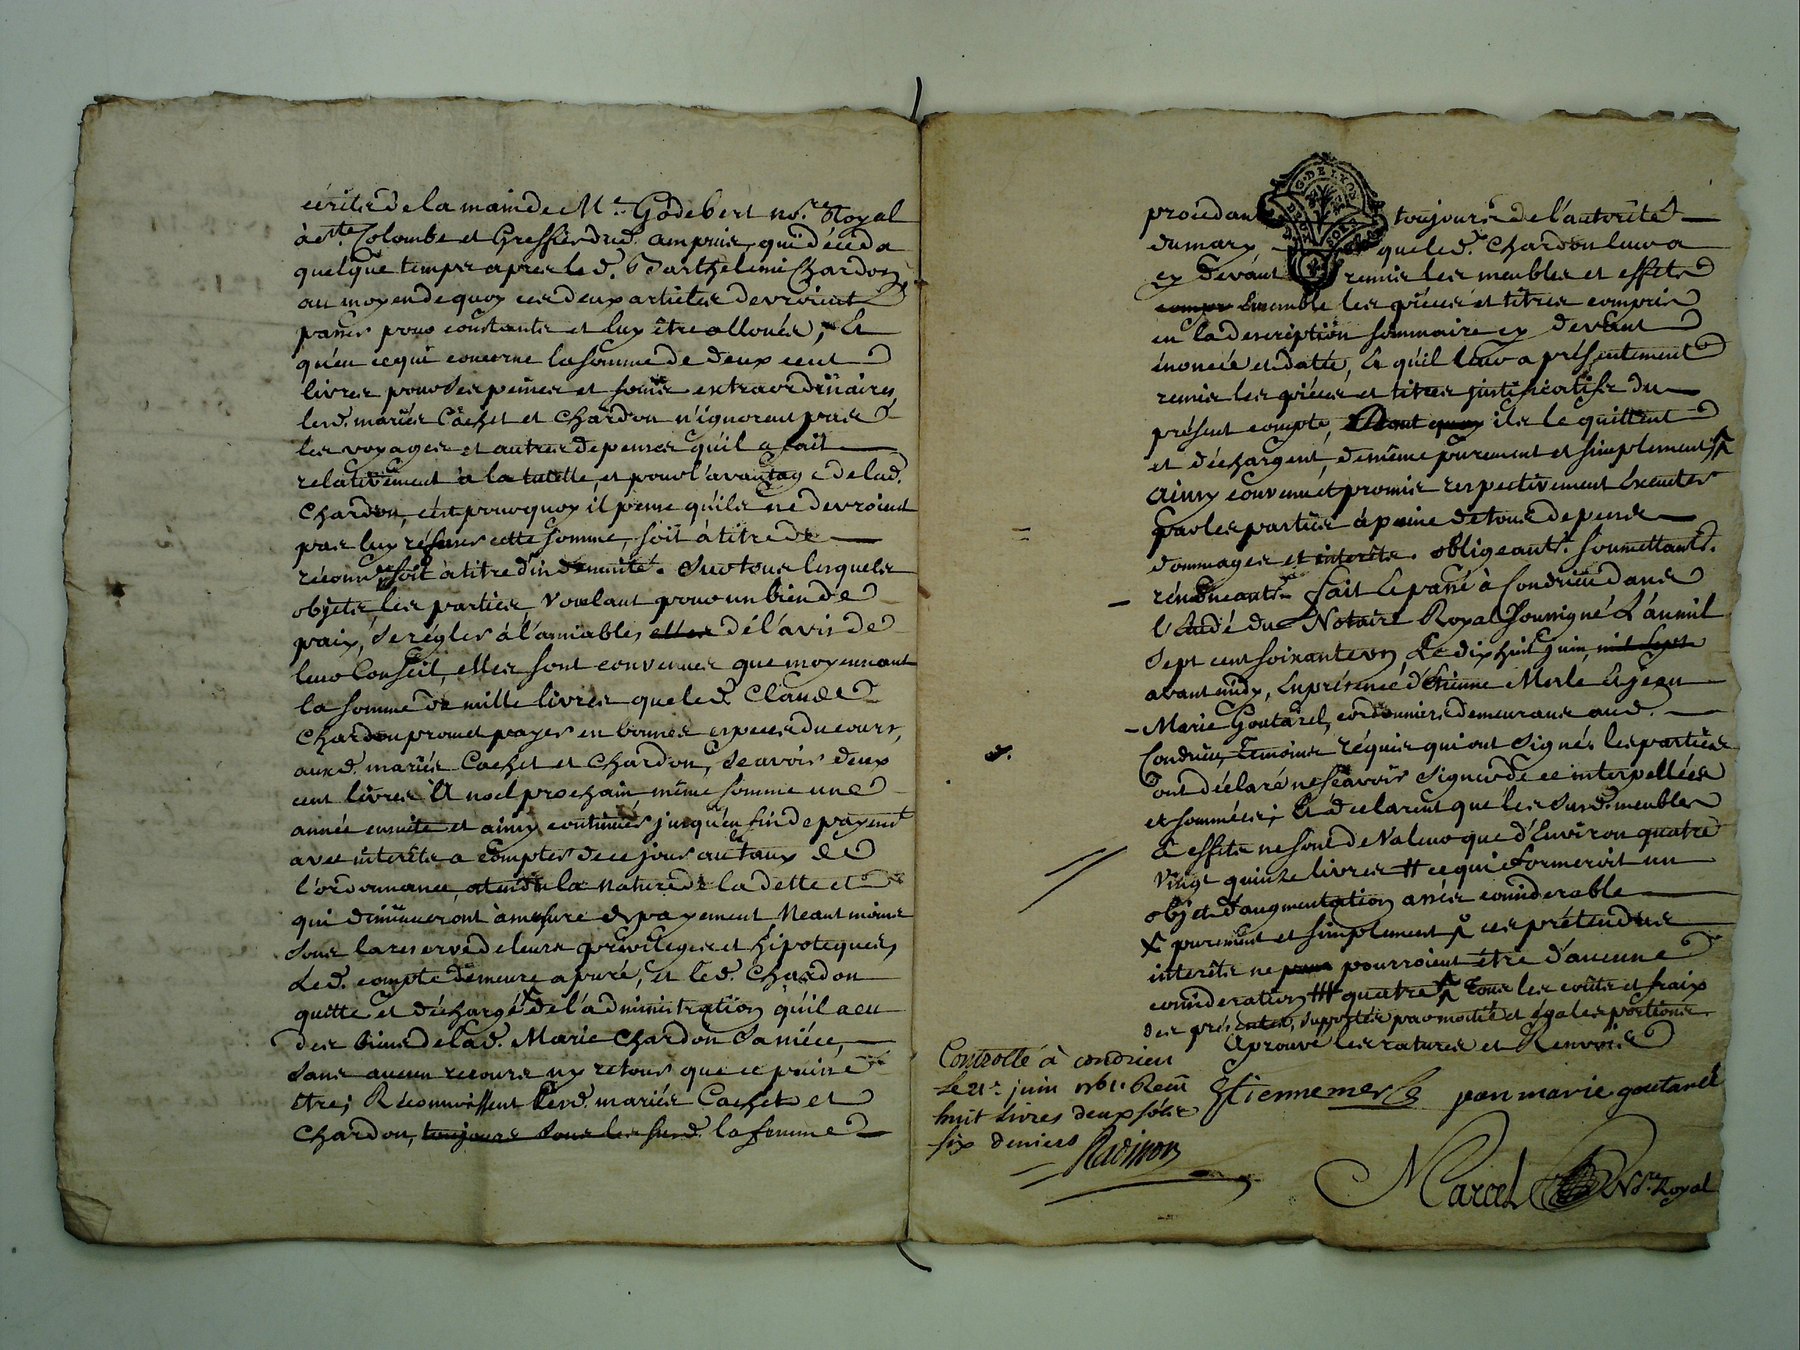 écrite de la main de Me. Godebert nore. Royal
à Ste. Colombe et Greffier dud. ampuis, qui décéda
quelque temps apres led. Barthelemi Chardon
au moyen de quoy ces deux articles devroient
passer pour constants et luy être alloués, Et
qu'en ce qui concerne la somme de deux cent
livres pour ses peines et soins extraordinaires,
lesd. mariés Cachet et Chardon n'ignorent pas
les voyages et autres depenses qu'il a fait
relativement à la tutelle, et pour l'avantage de lad.
Chardon, c'est pourquoy il pense qu'ils ne devroient
pas luy refuser cette somme, soit à titre de
soit à titre d'indemnité. Sur tous lesquels
objets, les parties, voulant pour un bien de
paix, se régler à l'amiable, elles dé l'avis de
leur Conseil, elles sont convenues que moyennant
la somme de mille livres que led. Claude
Chardon promet payer en bonnes especes du cours,
auxd. mariés Cachet et Chardon, Scavoir deux
cent livres A noel prochain même somme une
année ensuite et ainsy continuer jusqu'en fin de payemt
avec interêts a compter de ce jour au taux de
l'ordonnance attendu la nature de la dette et
qui diminueront à mesure du payement, Neantmoins
sous la reserve de leurs privileges et hipoteques,
Led. compte demeure apuré, et led. Chardon
quitte et déchargé de l'administration qu'il a eu
des biens de lad. Marie Chardon Sa niéce,
sans aucun recours ny retour que ce puisse
être; Reconnoissent lesd. mariés Cachet et
Chardon, toujours sous les susd. la femme
procédant toujours de l'autorité
du mary que led. Chardon leur a
cy devant remis les meubles et effets
compr Ensemble les piéces et titres compris
en la description sommaire cy devant
énoncée et datée, Et qu'il leur a présentement
remis les piéces et titres justificatifs du
présent compte, Dont quoy ils le quittent
et déchargent, de même purement et simplement
Ainsy convenu et promis respectivement Executer
par les parties à peine de tous depens
dommages et interêts. obligeants. soumettants.
rénonceants. fait Et passé à Condrieu dans
l'Etude du Notaire Royal Soussigné L'an mil
Sept cent soixante un, Le dix huit juin, mil sept
avant midy, En présence d'Etienne Merle Et jean
Marie Goutarel, cordonniers demeurans aud.
Condrieu, Temoins réquis qui ont Signés les parties
ont déclaré ne Sçavoir Signer de ce interpellées
et sommées; Et declarent que les Susd. meubles
Et effets ne sont de Valeur que d'Environ quatre
vingt quinze livres # ce qui formeroit un
objet d'augmentation assés considerable
X purement et simplement X ces prétendus
interêts ne pourroient être d'aucune
consideration ## quatre Tous les coûts et fraix
des présentes, supportés par moitié et égales portions
Aprouvé les ratures et Renvois
Controllé à condrieu
le 21e. juin 1761. Reçu
huit livres deux sols
six deniers
Etienne merle jean marie goutarel
Marcel Nore. Royal